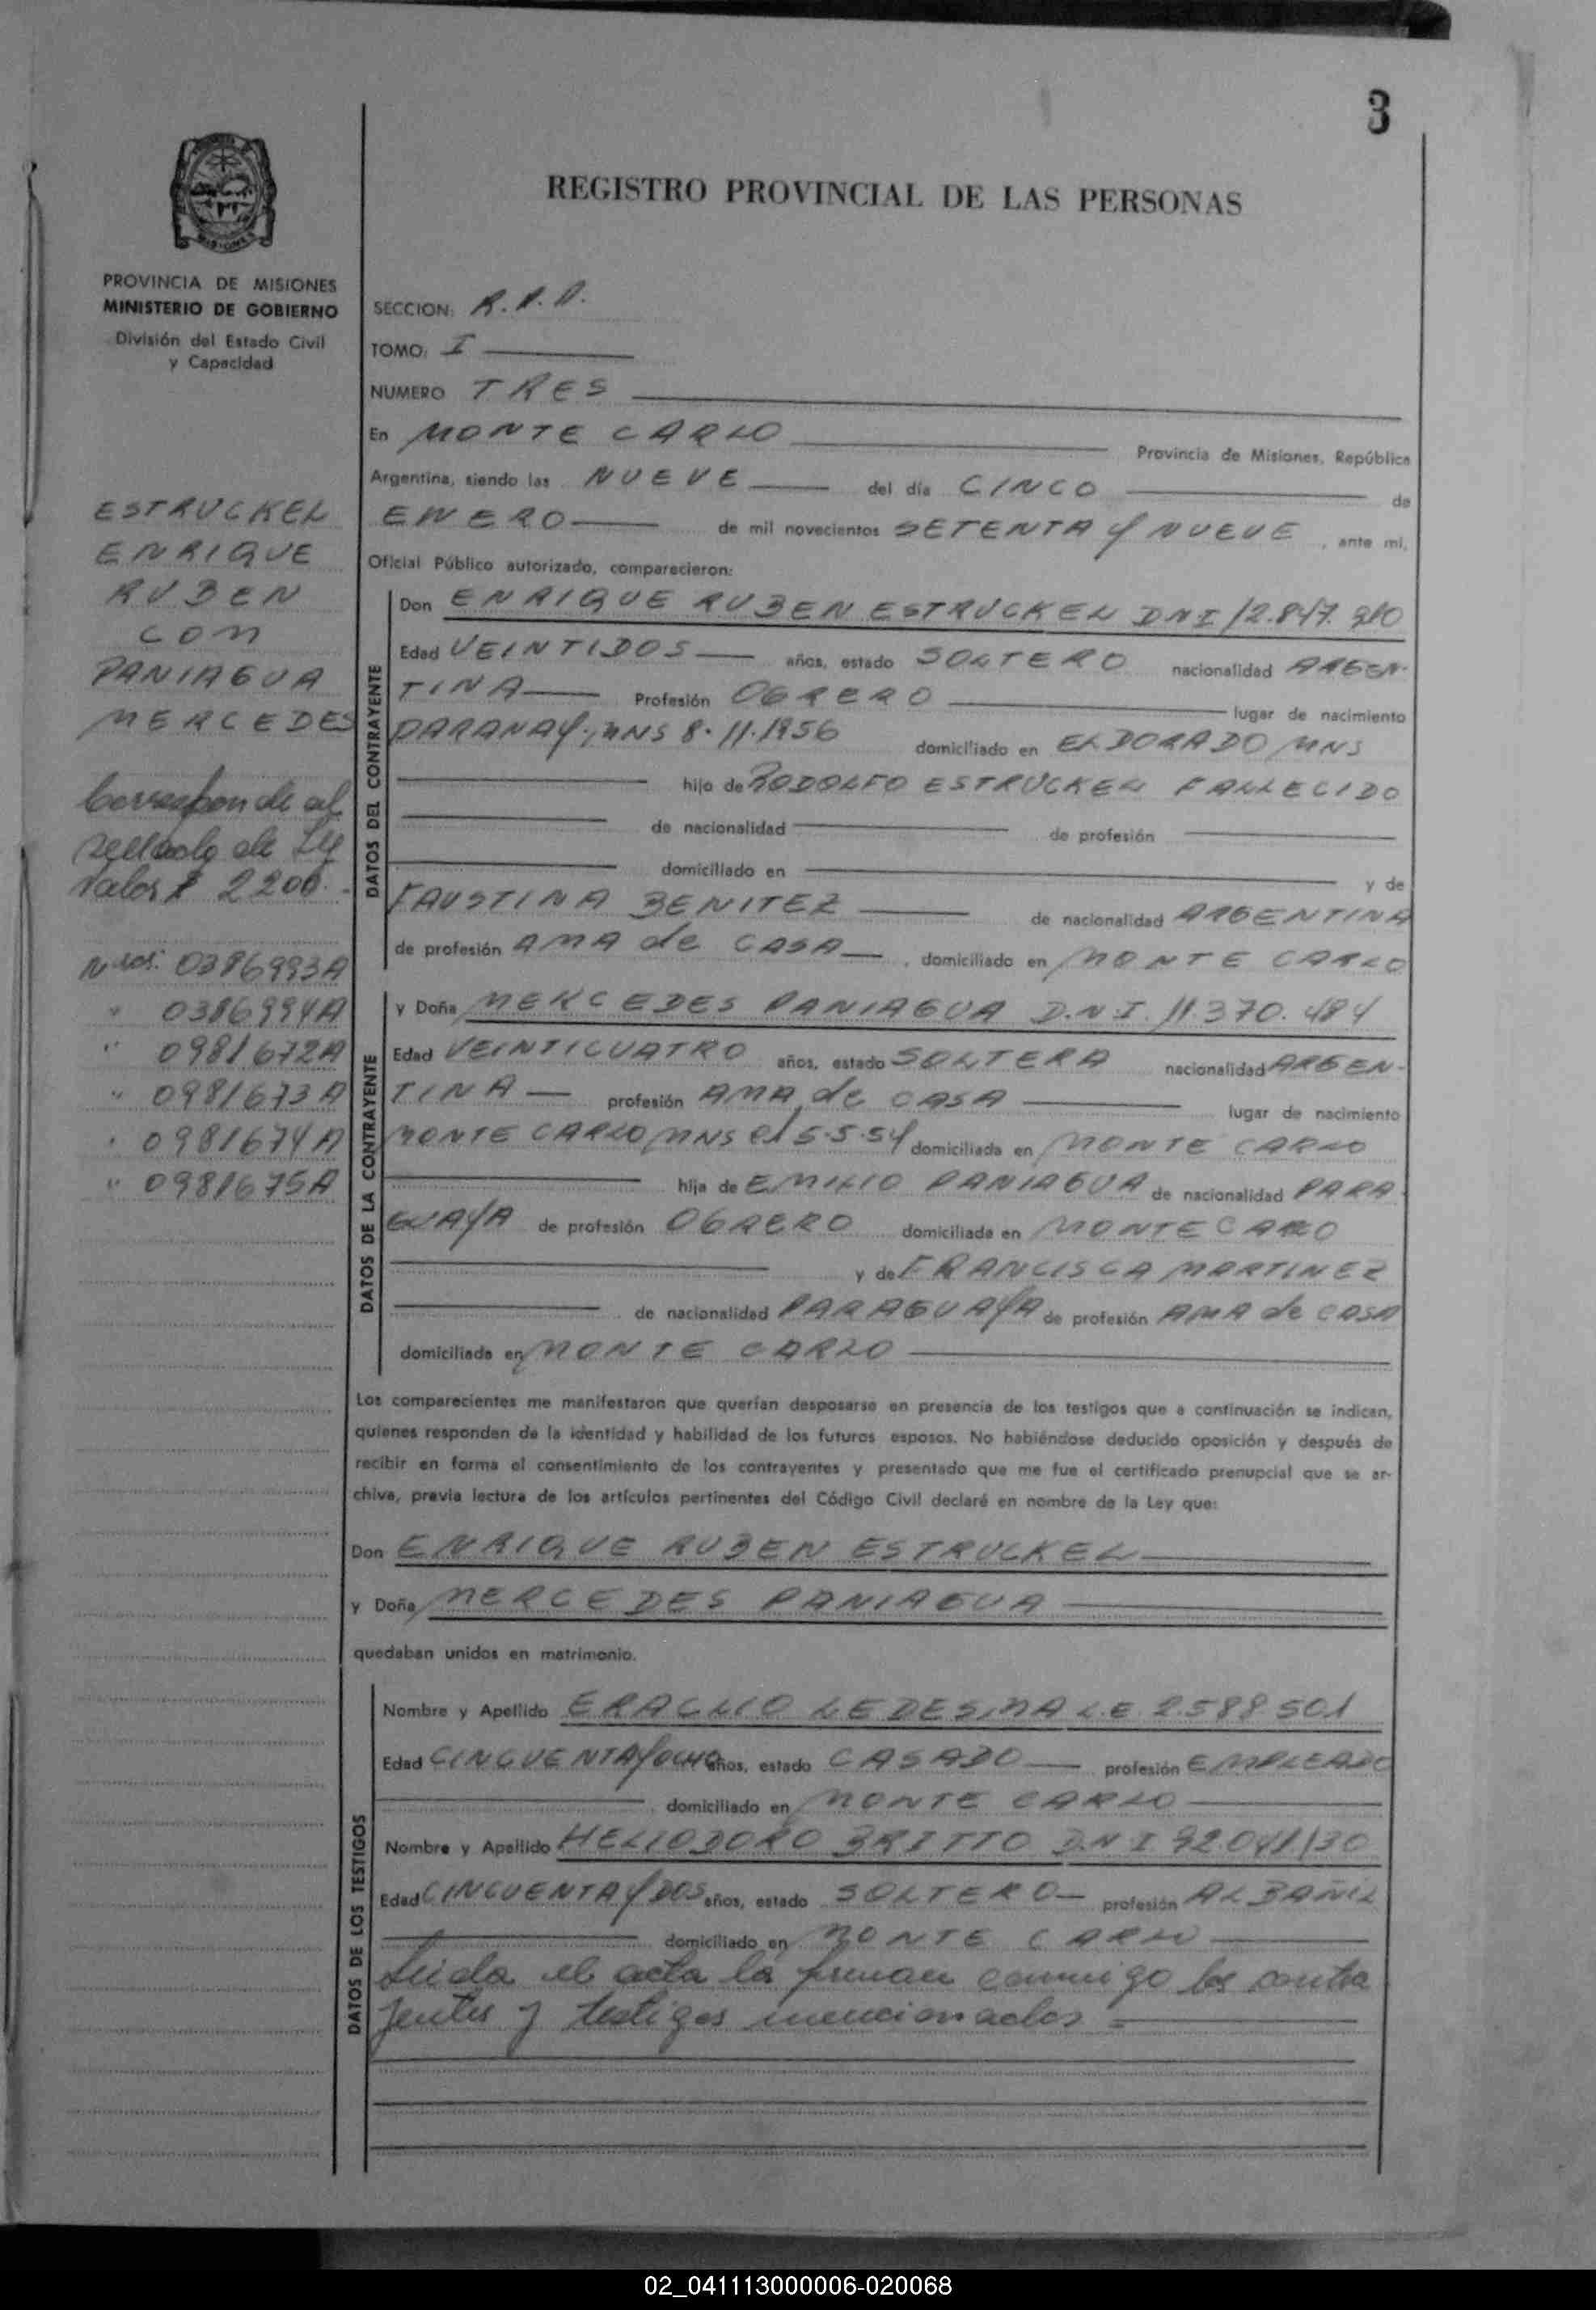 3
REGISTRO PROVINCIAL DE LAS PERSONAS
MISIONES
PROVINCIA DE MISIONES
MINISTERIO DE GOBIERNO
División del Estado Civil
y Capacidad
ESTRUCKEL
ENRIQUE
RUBEN
CON
PANIAGUA
MERCEDES
Corresponde al
sellado de Ley
Valor $ 2200.-
Nros. 0386993A
" 0386994A
" 0981672A
" 0981673A
" 0981674A
" 0981675A
SECCION:
TOMO: I
NUMERO TRES
En MONTE CARLO Provincia de Misiones, República
Argentina, siendo las NUEVE del día CINCO de
ENERO de mil novecientos SETENTA Y NUEVE, ante mi,
Oficial Público autorizado, comparecieron:
DATOS DEL CONTRAYENTE
Don ENRIQUE RUBEN ESTRUCKEL DNI 12.847.
Edad VEINTIDOS años, estado SOLTERO nacionalidad ARGEN-
TINA Profesión OBRERO lugar de nacimiento
PARANAY, MNS 8.11.1956 domiciliado en ELDORADO MNS
hijo de RODOLFO ESTRUCKEL FALLECIDO
de nacionalidad de profesión
domiciliado en y de
FAUSTINA BENITEZ de nacionalidad ARGENTINA
de profesión AMA de CASA, domiciliado en MONTE CARLO
DATOS DE LA CONTRAYENTE
y Doña MERCEDES PANIAGUA D.N.I. 11.370.484
Edad VEINTICUATRO años, estado SOLTERA nacionalidad ARGEN-
TINA profesión AMA de CASA lugar de nacimiento
MONTE CARLO, MNS el 5.5.54 domiciliada en MONTE CARLO
hija de EMILIO PANIAGUA de nacionalidad PARA
GUAYA de profesión OBRERO domiciliada en MONTE CARLO
y de FRANCISCA MARTINEZ
de nacionalidad PARAGUAYA de profesión AMA de CASA
domiciliada en MONTE CARLO
Los comparecientes me manifestaron que querían desposarse en presencia de los testigos que a continuación se indican,
quienes responden de la identidad y habilidad de los futuros esposos. No habiéndose deducido oposición y después de
recibir en forma el consentimiento de los contrayentes y presentado que me fue el certificado prenupcial que se ar-
chiva, previa lectura de los artículos pertinentes del Código Civil declaré en nombre de la Ley que:
Don ENRIQUE RUBEN ESTRUCKEL
y Doña MERCEDES PANIAGUA
quedaban unidos en matrimonio.
DATOS DE LOS TESTIGOS
Nombre y Apellido ERACLIO LEDESMA L.E. 2.588.501
Edad CINCUENTA Y OCHO años, estado CASADO profesión EMPLEADO
domiciliado en MONTE CARLO
Nombre y Apellido HELIODORO BRITTO D.N.I. 92.041.130
Edad CINCUENTA Y DOS años, estado SOLTERO profesión ALBAÑIL
domiciliado en MONTE CARLO
Leida el acta la firman conmigo los contra
yentes y testigos mencionados
02_041113000006-020068